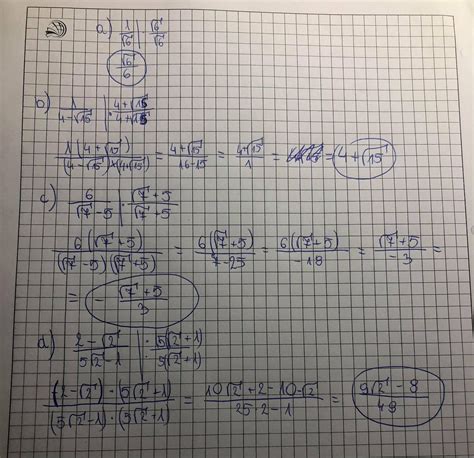 a) 1/√6 | · √6/√6
√6/6
b) 1/(4-√15) | · (4+√15)/(4+√15)
1(4+√15)/((4-√15)·(4+√15)) = (4+√15)/(16-15) = (4+√15)/1 = = 4+√15
c) 6/(√7-5) | · (√7+5)/(√7+5)
6(√7+5)/((√7-5)(√7+5)) = 6(√7+5)/(7-25) = 6(√7+5)/-18 = (√7+5)/-3 =
= - (√7+5)/3
d) (2-√2)/(5√2-1) | · (5√2+1)/(5√2+1)
(2-√2)·(5√2+1)/((5√2-1)·(5√2+1)) = (10√2+2-10-√2)/(25·2-1) = (9√2-8)/49